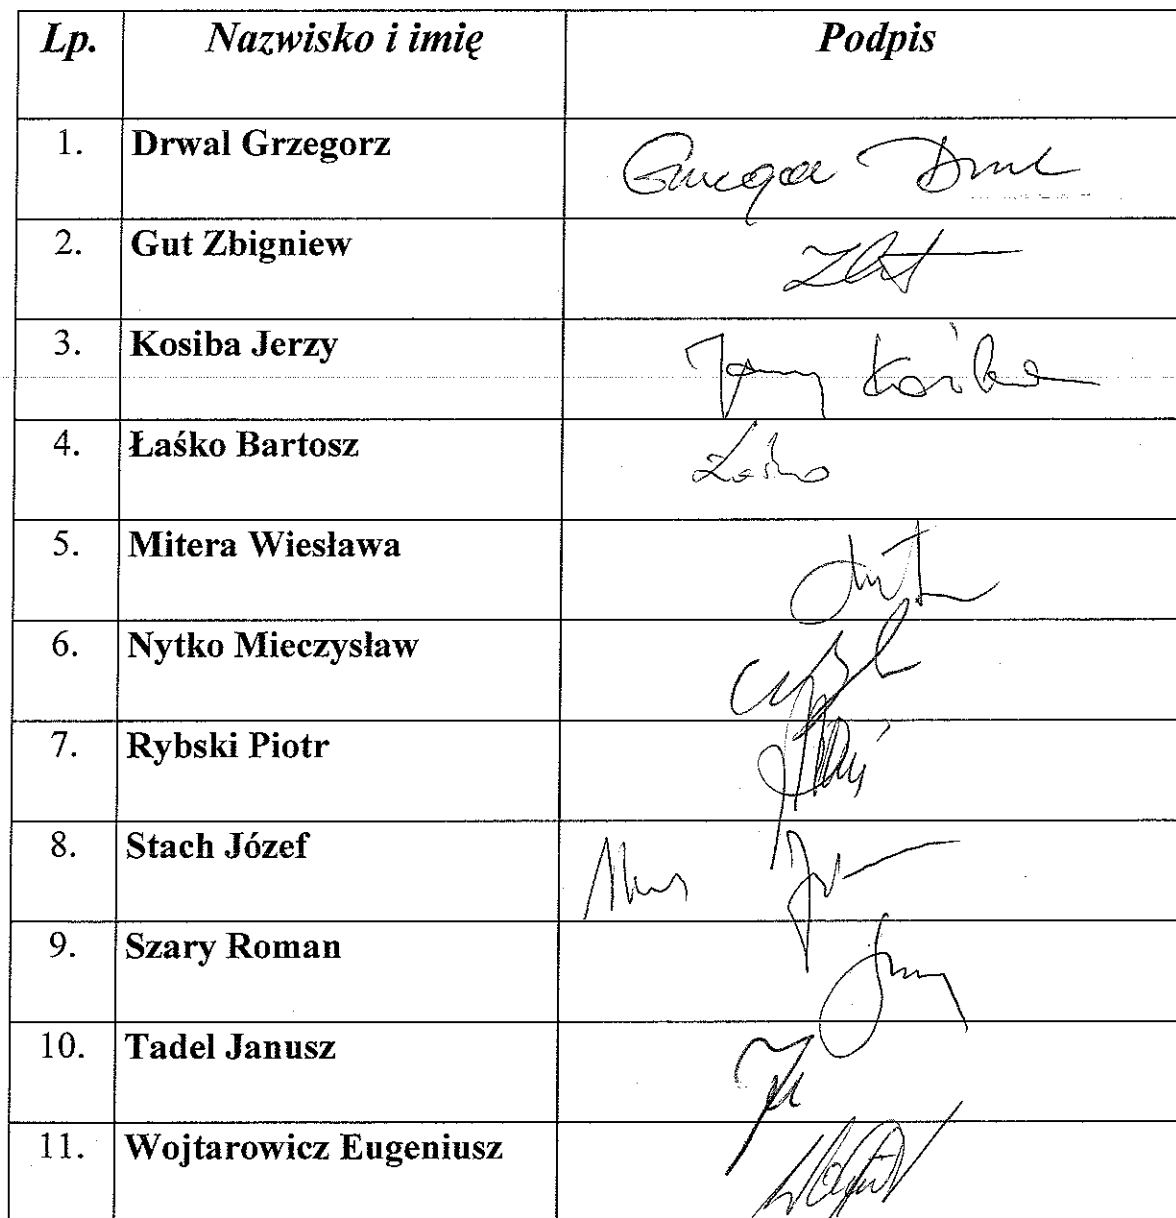 Lp. Nazwisko i imię Podpis
1. Drwal Grzegorz
2. Gut Zbigniew
3. Kosiba Jerzy Jerzy Kosiba
4. Łaśko Bartosz Łaśko
5. Mitera Wiesława
6. Nytko Mieczysław
7. Rybski Piotr
8. Stach Józef
9. Szary Roman
10. Tadel Janusz
11. Wojtarowicz Eugeniusz